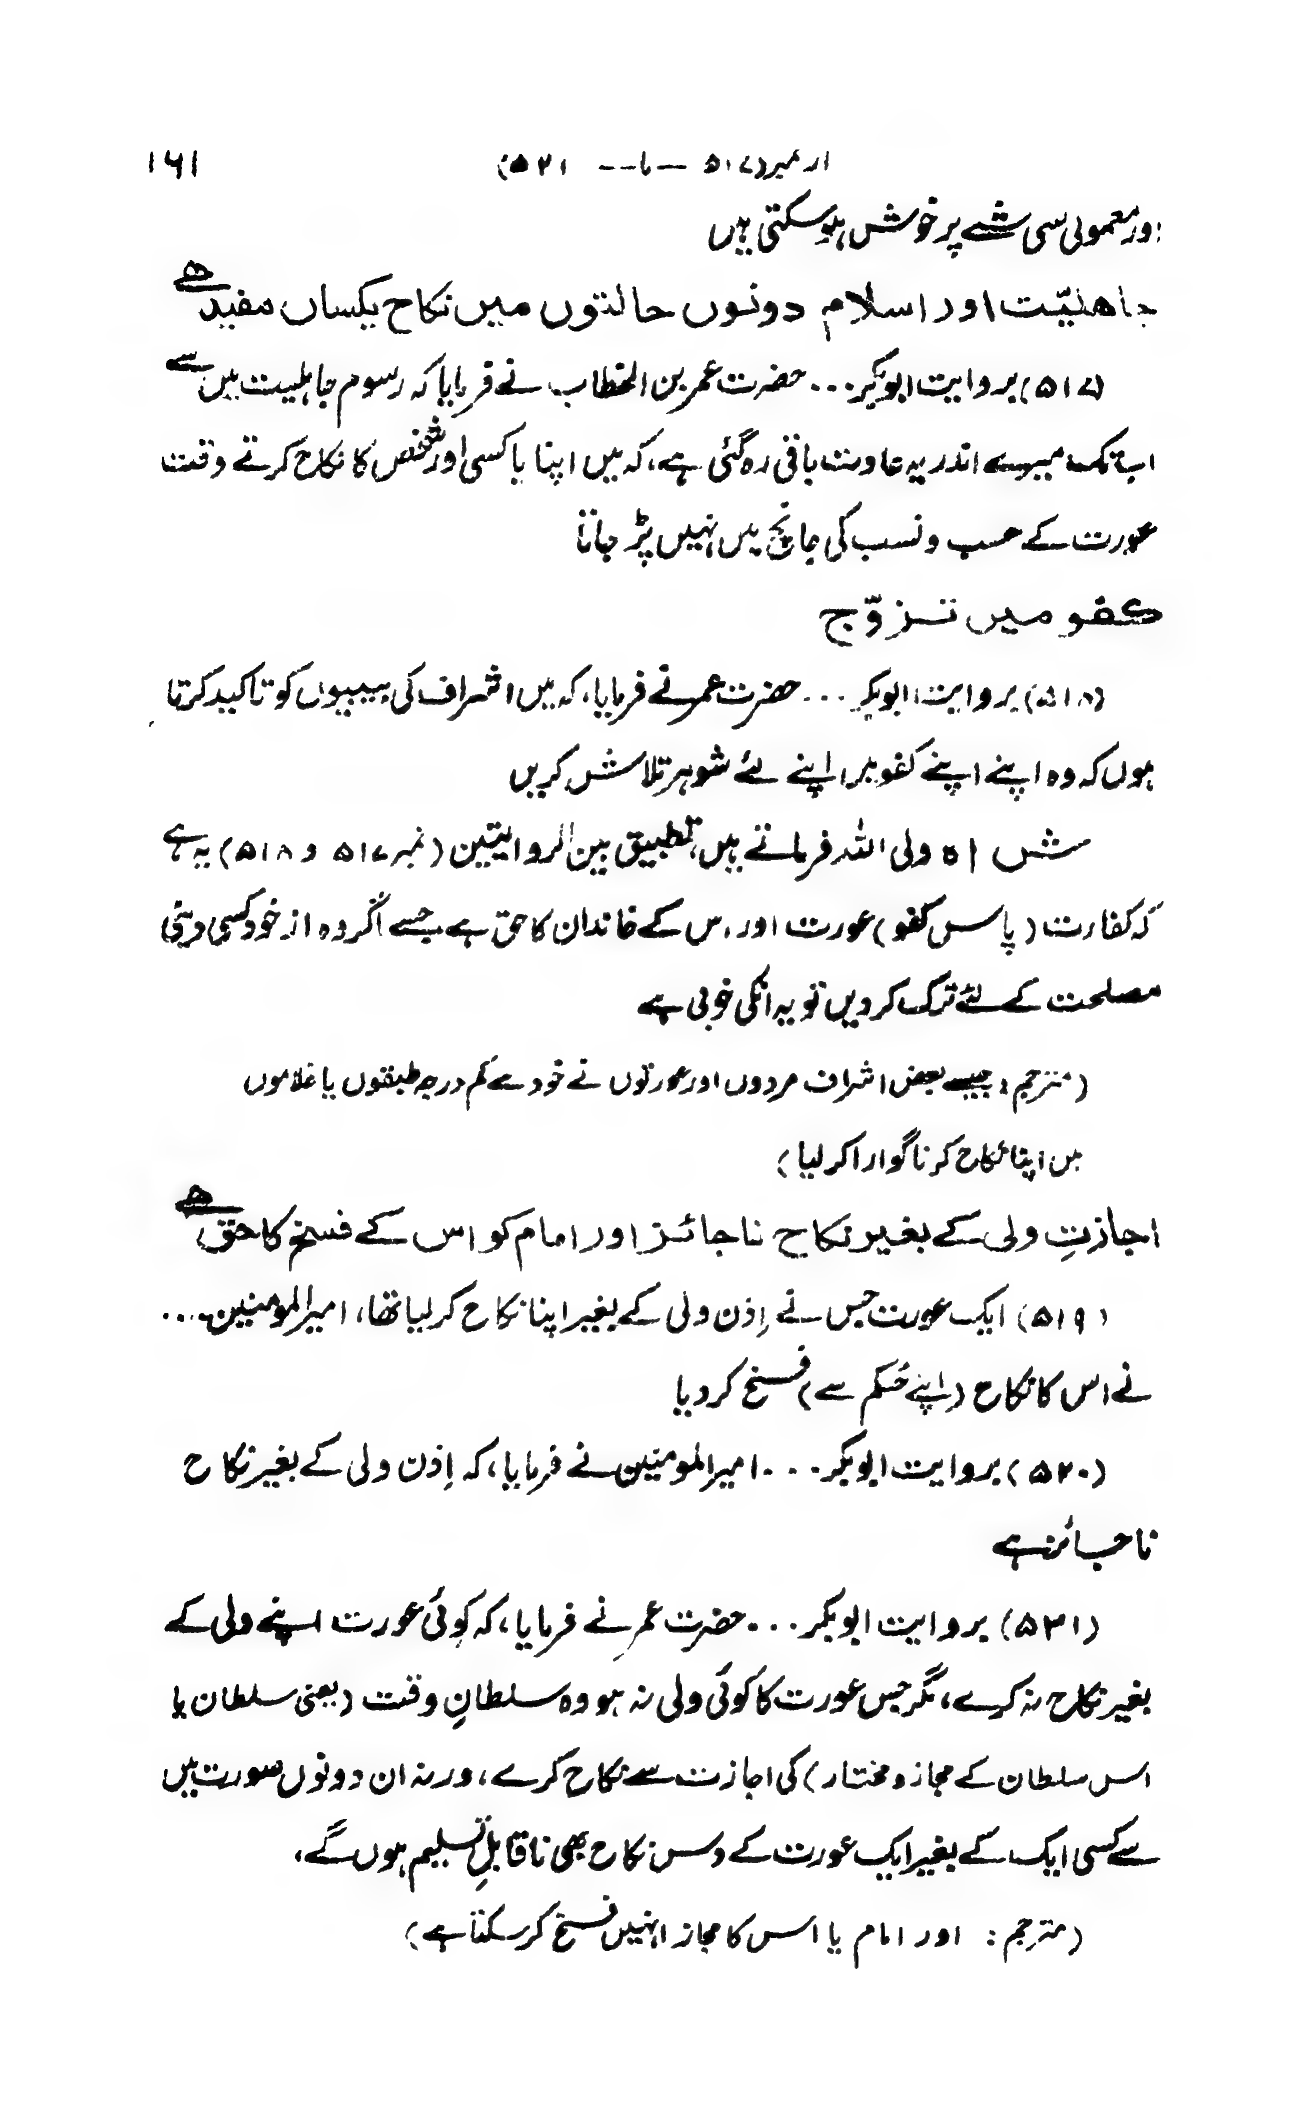 از نمبر (۵۱۷ — تا -- ۵۲۱) ۱۶۱
اور معمولی سی شے پر خوش ہو سکتی ہیں
جاھلیّت اور اسلام دونوں حالتوں میں نکاح یکساں مفید ھے
(۵۱۷) بروایت ابوبکر... حضرت عمر بن الخطاب نے فرمایا کہ رسوم جاہلیت میں سے
اب تک میرے اندر یہ عادت باقی رہ گئی ہے، کہ میں اپنا یا کسی اور شخص کا نکاح کرتے وقت
عورت کے حسب و نسب کی جانچ میں نہیں پڑ جاتا
کفو میں تزوّج
(۵۱۸) بروایت ابوبکر ... حضرت عمر نے فرمایا، کہ میں اشراف کی بیبیوں کو تاکید کرتا
ہوں کہ وہ اپنے اپنے کفو میں اپنے لئے شوہر تلاش کریں
ش اہ ولی اللہ فرماتے ہیں، تطبیق بین الروایتین (نمبر ۵۱۷ و ۵۱۸) یہ ہے
کہ کفارت (پاس کفو) عورت اور اس کے خاندان کا حق ہے جسے اگر وہ از خود کسی دینی
مصلحت کے لئے ترک کر دیں تو یہ انکی خوبی ہے
(مترجم: جیسے بعض اشراف مردوں اور عورتوں نے خود سے کم درجہ طبقوں یا غلاموں
میں اپنا نکاح کرنا گوارا کر لیا)
اجازتِ ولی کے بغیر نکاح ناجائز اور امام کو اس کے فسخ کا حق ھے
(۵۱۹) ایک عورت جس نے اِذن ولی کے بغیر اپنا نکاح کر لیا تھا، امیرالمومنین....
نے اس کا نکاح (اپنے حُکم سے) فسخ کر دیا
(۵۲۰) بروایت ابوبکر... امیرالمومنین نے فرمایا، کہ اِذن ولی کے بغیر نکاح
ناجائز ہے
(۵۲۱) بروایت ابوبکر... حضرت عمر نے فرمایا، کہ کوئی عورت اپنے ولی کے
بغیر نکاح نہ کرے، مگر جس عورت کا کوئی ولی نہ ہو وہ سلطانِ وقت (یعنی سلطان یا
اس سلطان کے مجاز و مختار) کی اجازت سے نکاح کرے، ورنہ ان دونوں صورت میں
سے کسی ایک کے بغیر ایک عورت کے دس نکاح بھی ناقابلِ تسلیم ہوں گے،
(مترجم: اور امام یا اس کا مجاز انہیں فسخ کر سکتا ہے)